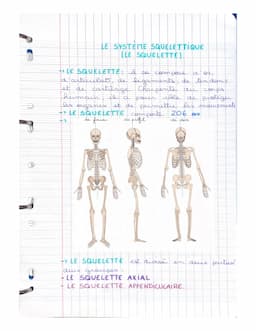 LE SYSTÈME SQUELETTIQUE
(LE SQUELETTE).
→ LE SQUELETTE: il se compose d'os
d'articulat°, de ligaments, de tendons
et de cartilage. Charpente du corps
humain, il a pour rôle de protéger
les organes et de permettre les mouvements
→ LE SQUELETTE comporte 206 os
de face de profil de dos
→ LE SQUELETTE est divisé en deux parties
deux groupes:
- LE SQUELETTE AXIAL
- LE SQUELETTE APPENDICULAIRE.